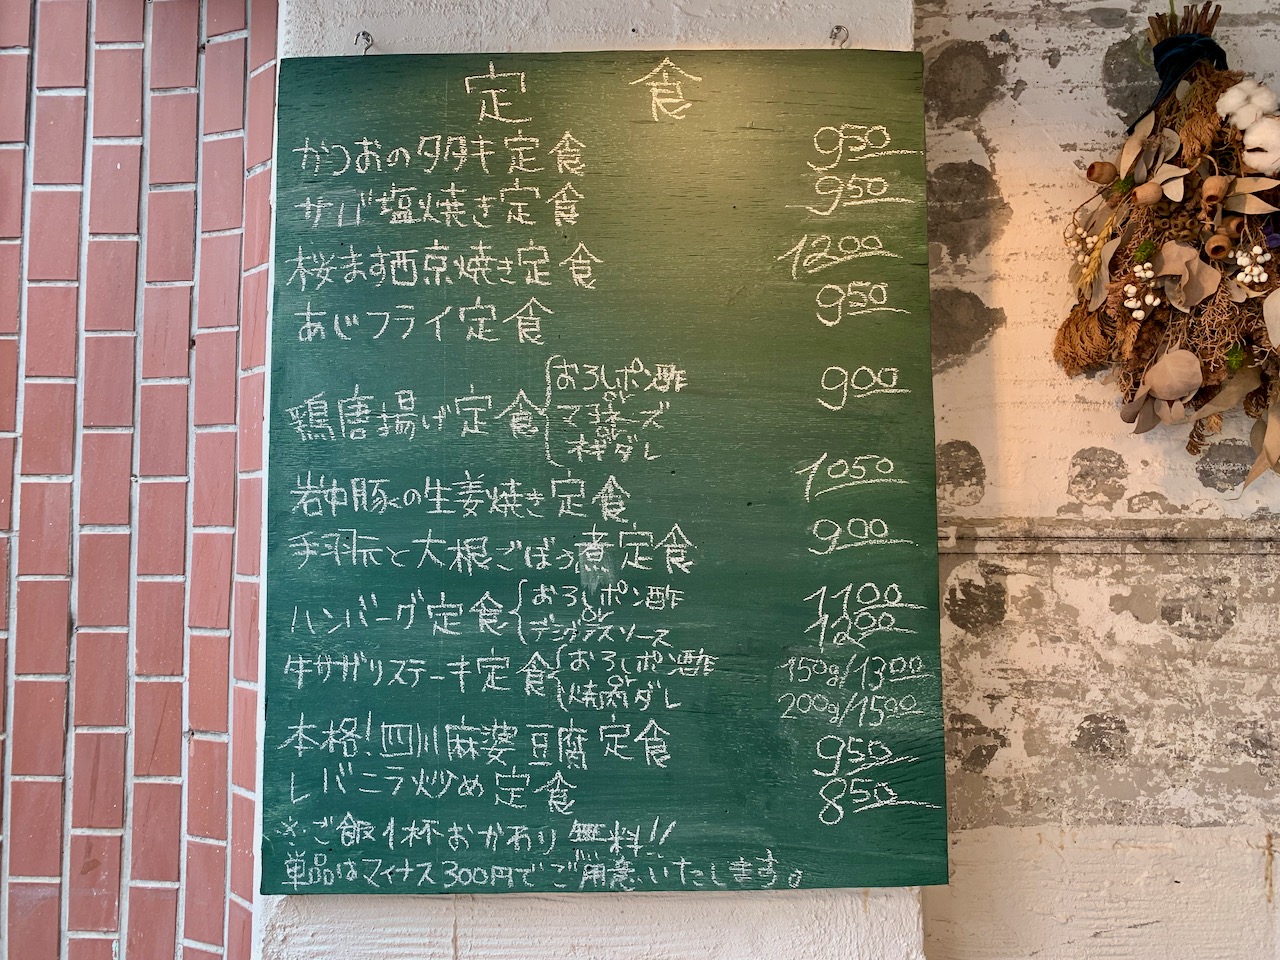 定食
かつおのタタキ定食 950
サバ塩焼き定食 950
桜ます西京焼き定食 1200
あじフライ定食 950
鶏唐揚げ定食 おろしポン酢 or マヨネーズ or 本格ダレ 900
岩中豚の生姜焼き定食 1050
手羽元と大根ごぼう煮定食 900
ハンバーグ定食 おろしポン酢 or デミグラスソース 1100 1200
牛サガリステーキ定食 おろしポン酢 or 焼肉ダレ 150g/1300 200g/1500
本格!四川麻婆豆腐定食 950
レバニラ炒め定食 850
※ご飯1杯おかわり無料!!
単品はマイナス300円でご用意いたします。